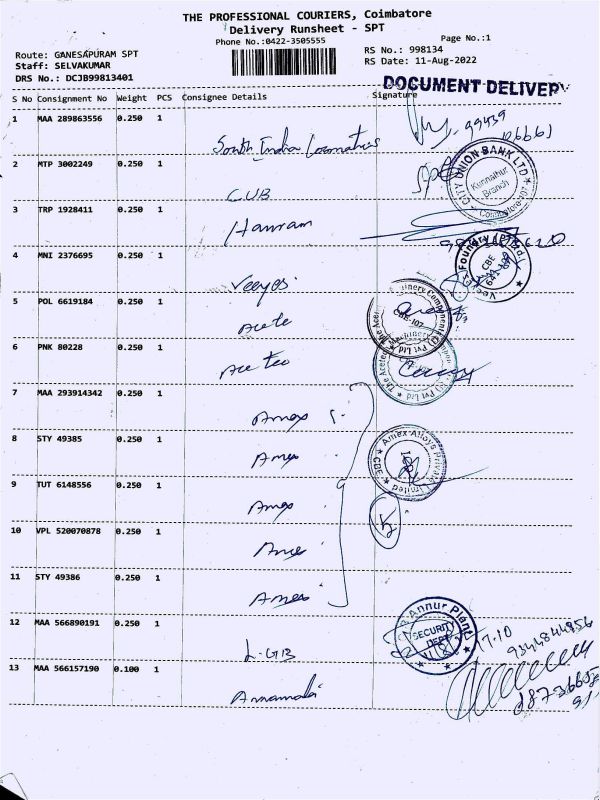 THE PROFESSIONAL COURIERS, Coimbatore
Delivery Runsheet - SPT
Phone No.:0422-3505555
Page No.:1
Route: GANESAPURAM SPT
RS No.: 998134
Staff: SELVAKUMAR
RS Date: 11-Aug-2022
DRS No.: DCJB99813401
DOCUMENT DELIVERY
S No Consignment No Weight PCS Consignee Details Signature
1 MAA 289863556 0.250 1 South India
2 MTP 3002249 0.250 1 CUB
CITY UNION BANK LTD
Kunnathur
Branch
Coimbatore-107
3 TRP 1928411 0.250 1
4 MNI 2376695 0.250 1 Veeyes
CBE
5 POL 6619184 0.250 1 Acetec
CBE-107
6 PNK 80228 0.250 1 Acetec
7 MAA 293914342 0.250 1 Amex
8 STY 49385 0.250 1 Amex
Amex Alloys Private Limited
CBE
9 TUT 6148556 0.250 1 Amex
10 VPL 520070878 0.250 1 Amex
11 STY 49386 0.250 1 Amex
12 MAA 566890191 0.250 1 LGB
Annur Plant
SECURITY
DEPT
17.10
13 MAA 566157190 0.100 1 Annamalai